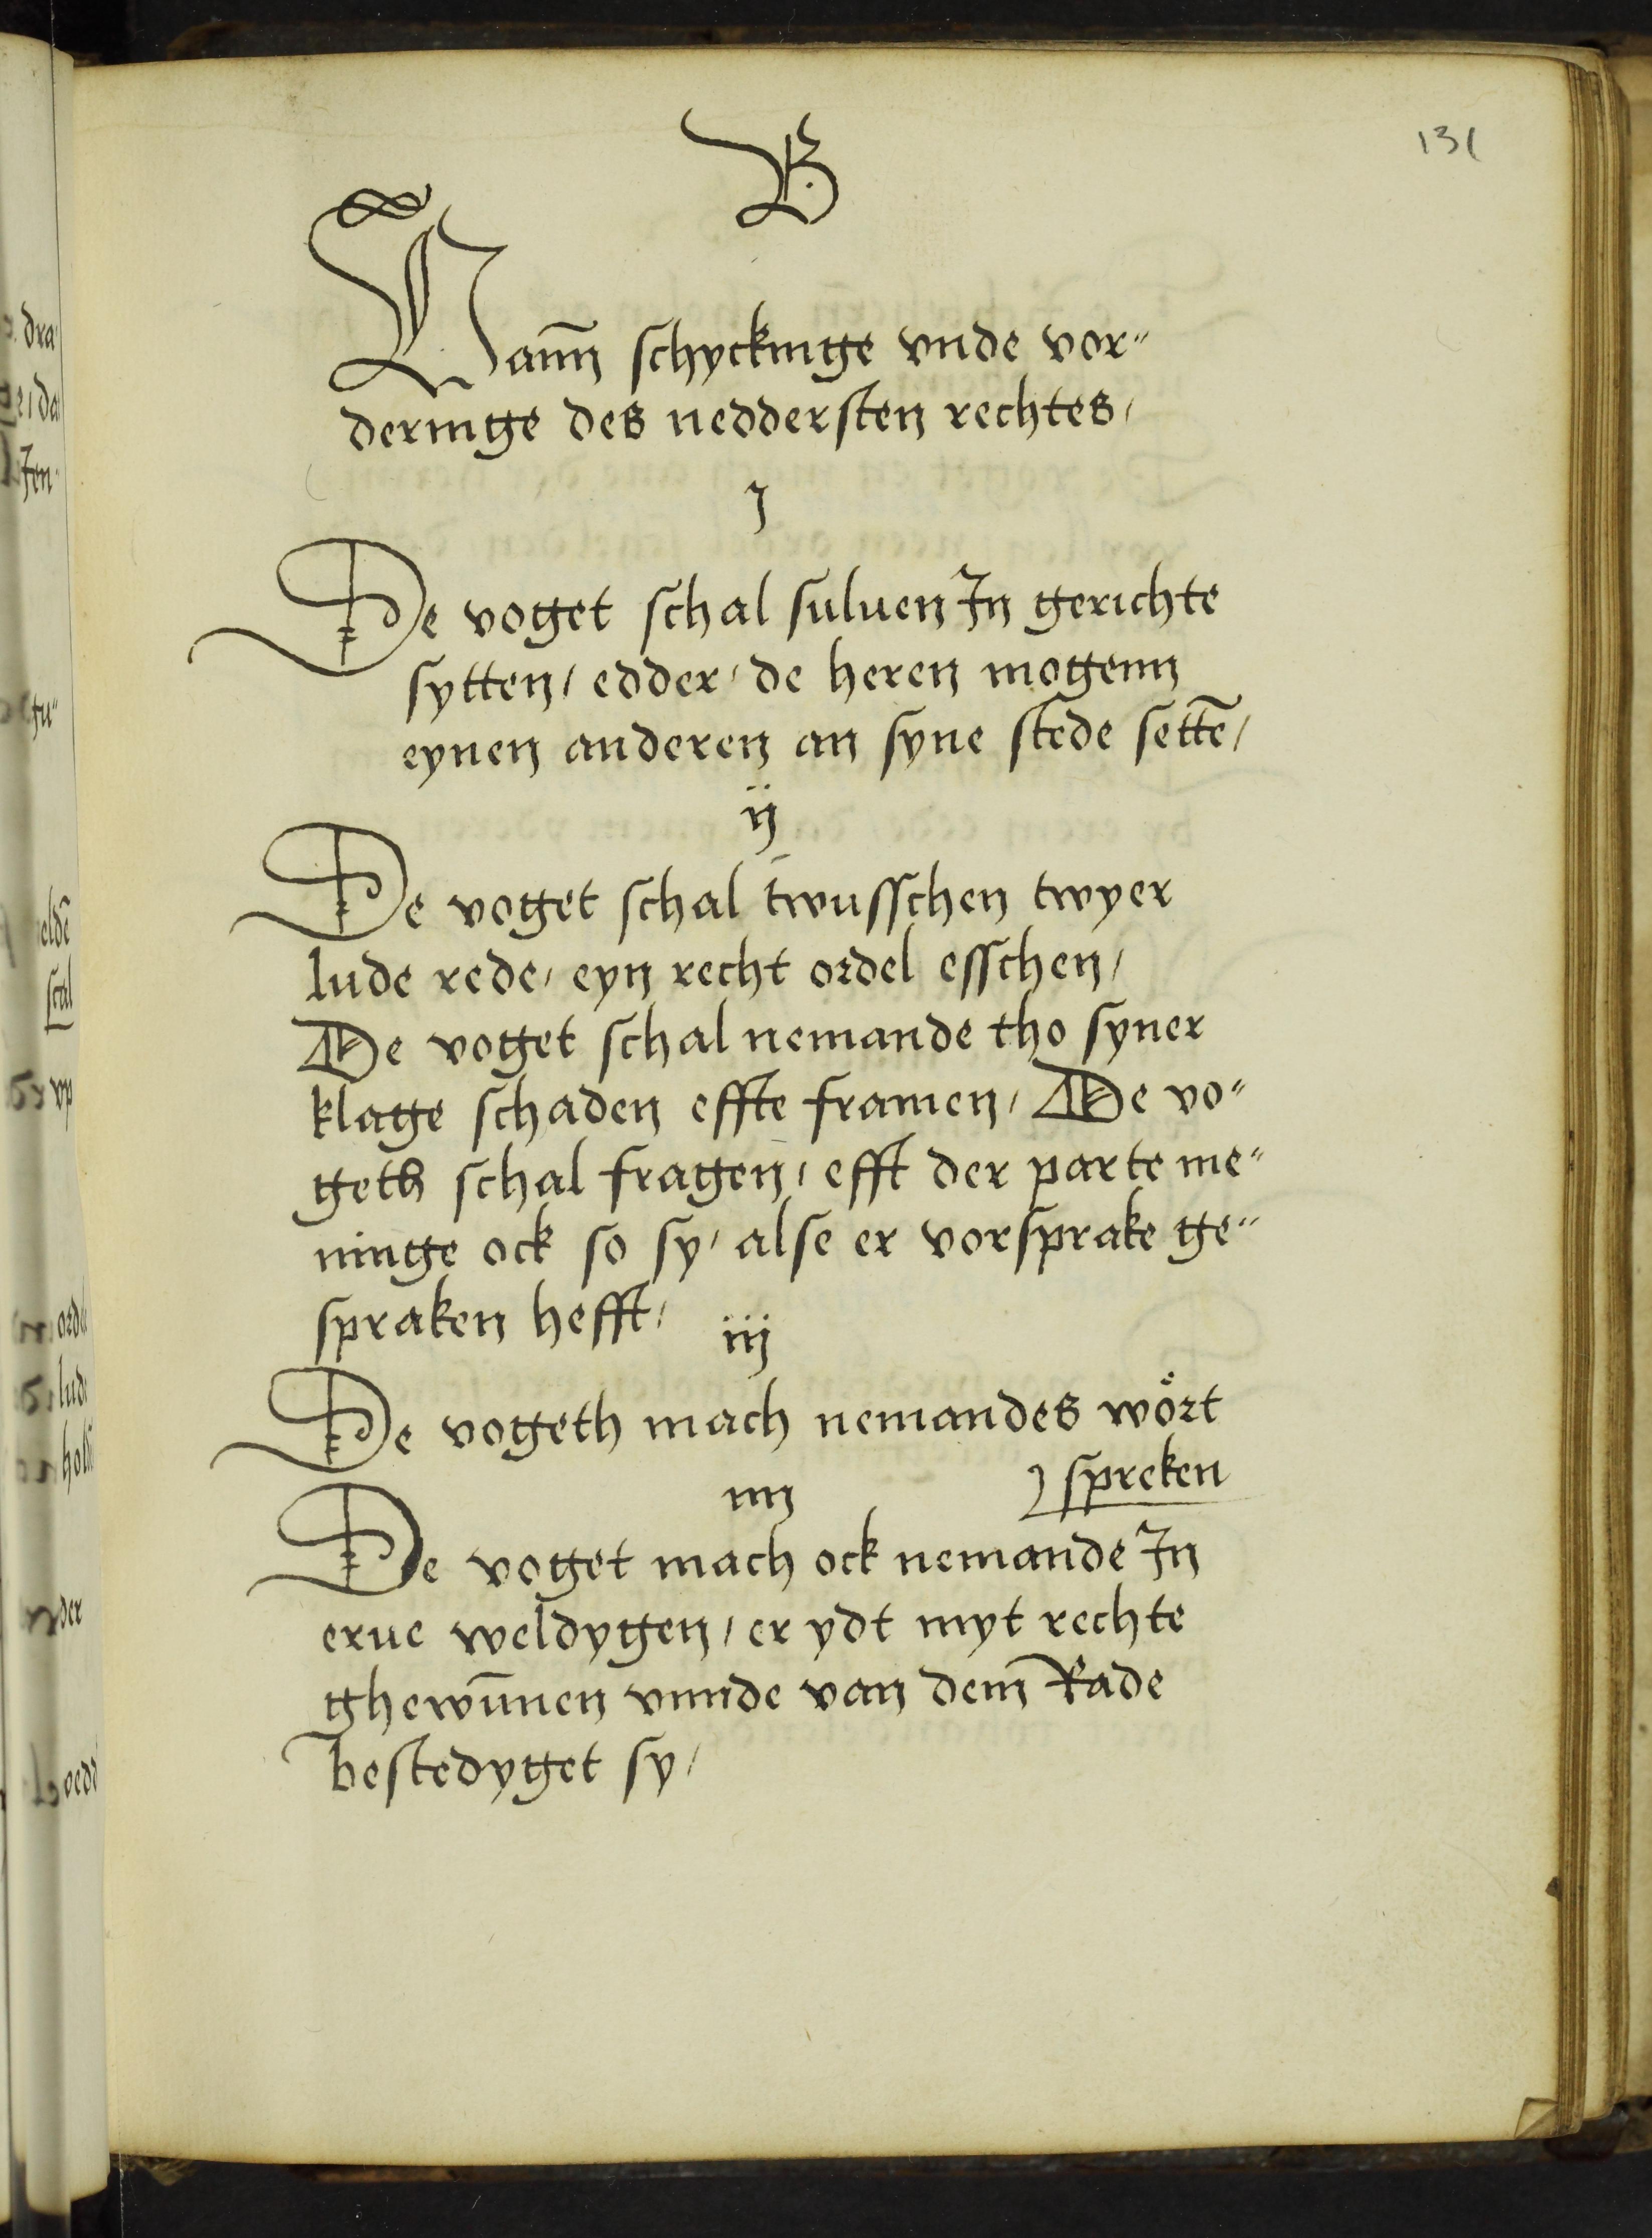 131
B
Vann̄ schyckinge vnde vor"
deringe des neddersten rechtes/
j
De voget schal suluen In gerichte
sytten/ edder/ de heren mogenn
eynen anderen an syne stede settē/
ij
De voget schal twusschen twyer
lude rede/ eyn recht ordel esschen/
De voget schal nemande tho syner
klage schaden effte framen/ De vo"
geth schal fragen/ efft der parte me"
ninge ock so sy/ alse er vorsprake ge"
spraken hefft/
iij
De vogeth mach nemandes wört
spreken
iiij
De voget mach ock nemande In
erue weldygen/ er ydt myt rechte
ghewūnen vnnde van dem̄ Rade
bestedyget sy/